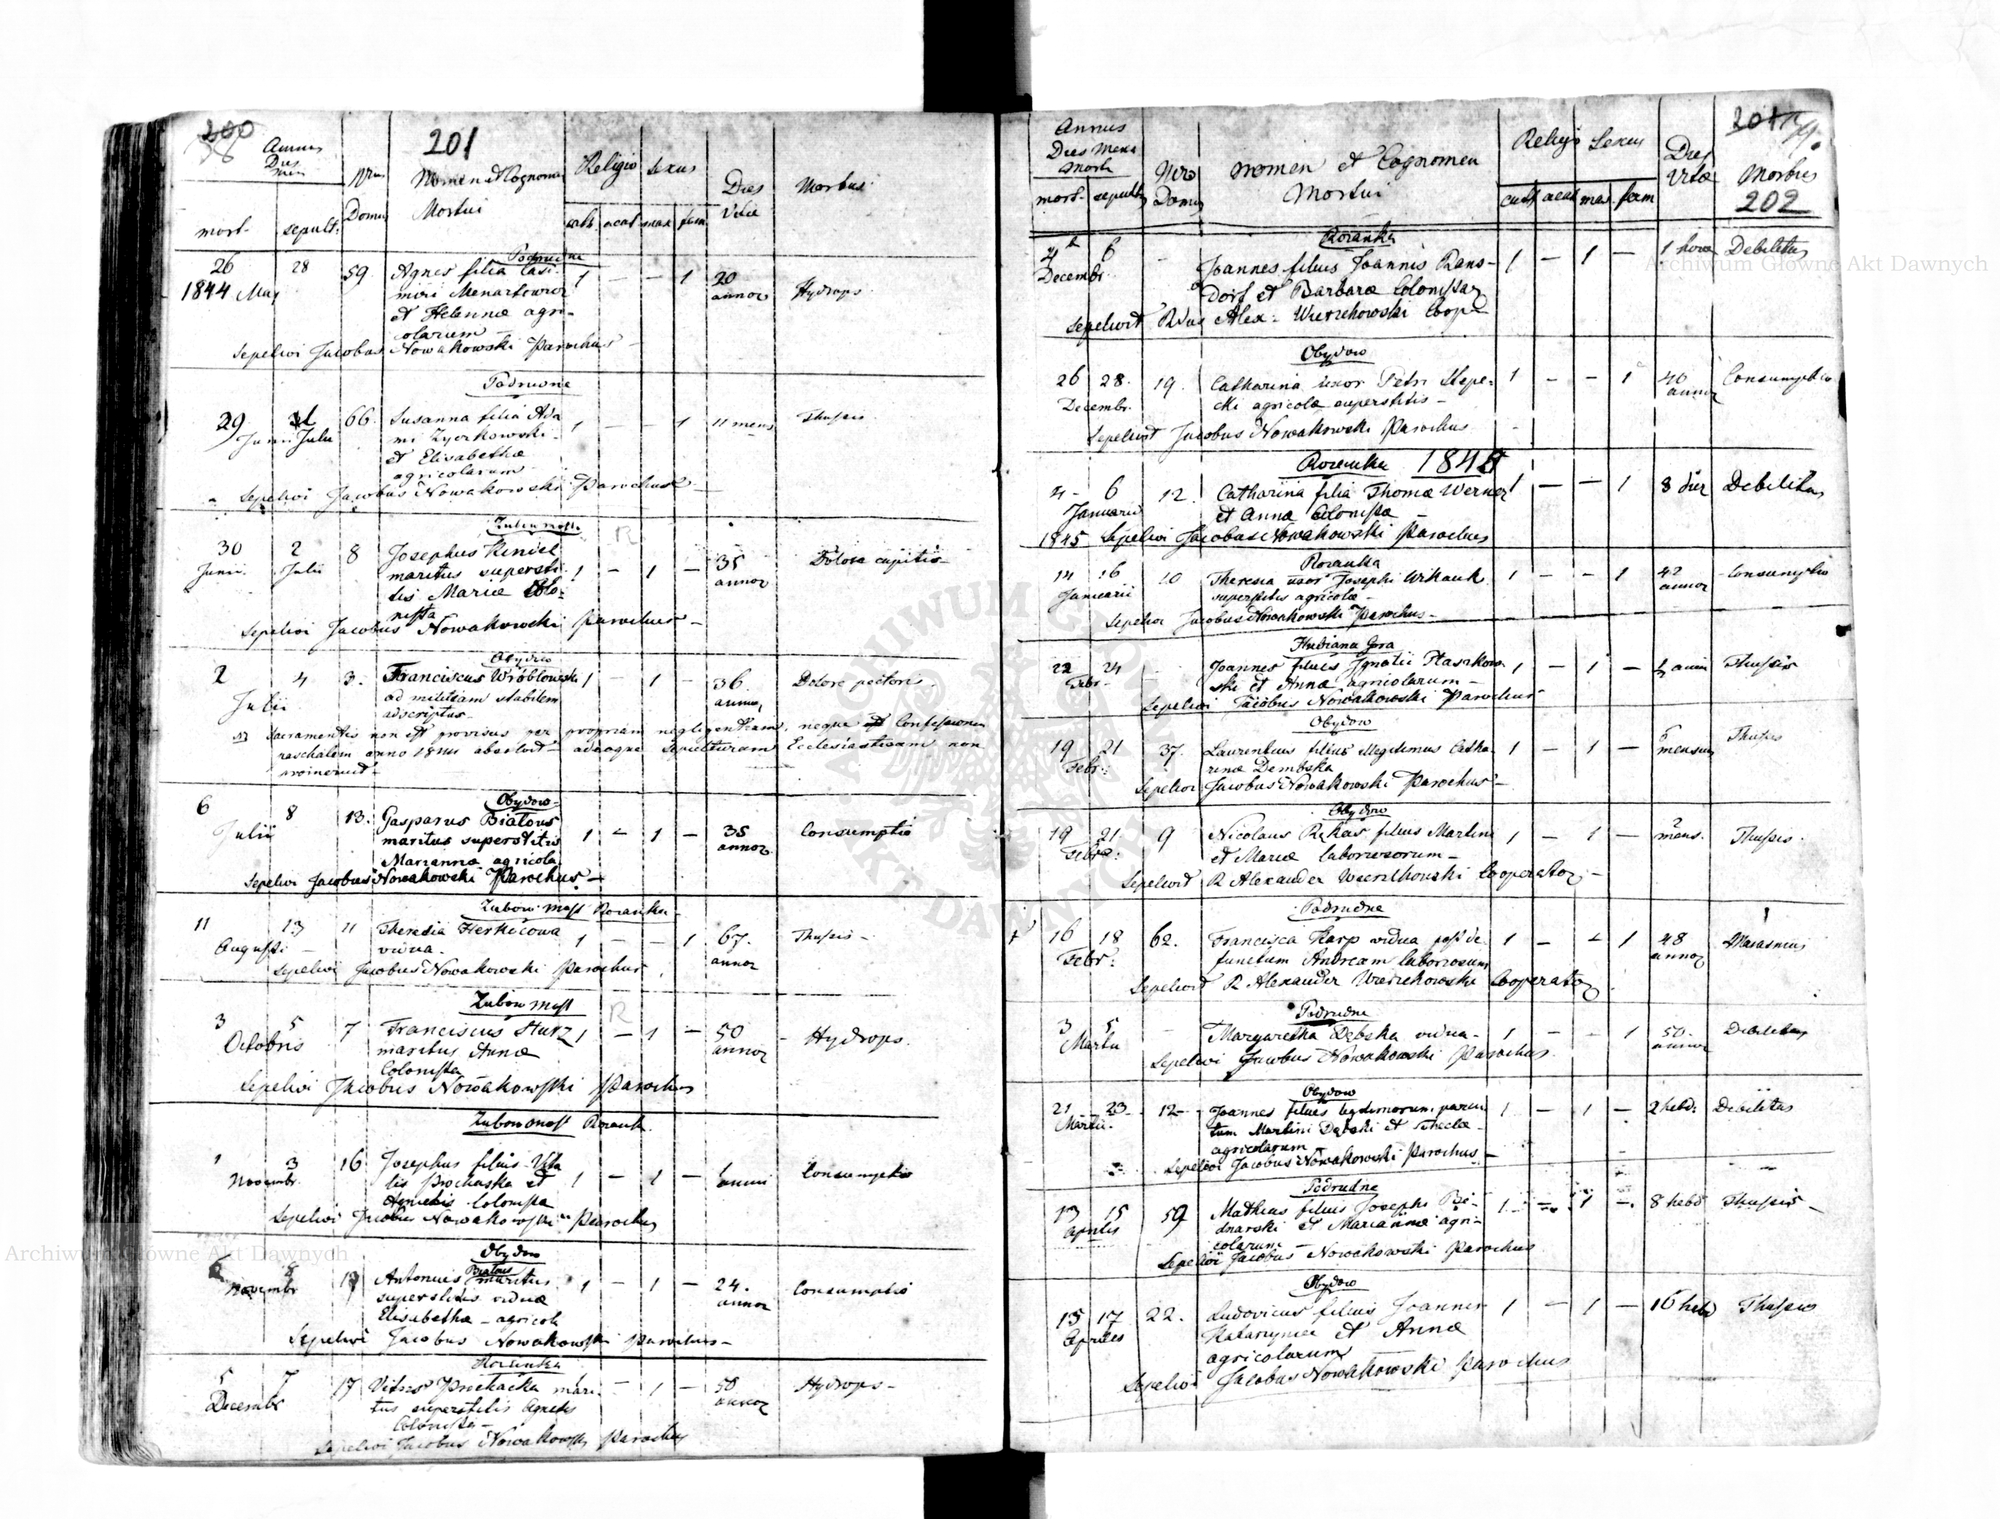 200
38
201
Annus
Dies
Nrus
Domus
Nomen et Cognomen
Mortui
Religio
Sexus
Dies
Vitae
Morbus
mort. sepult.
cath acat mas fem
Podrudne
26 28 59. Agnes filia Casi- 1 – – 1 20 Hydrops
1844 May miri annor
et Helennæ agri-
colarum
Sepelivi Jacobus Nowakowski Parochus
Podrudne
29 66. Susanna filia Ada 1 – – 1 11 mens Thussis
Junii Julii mi
et Elisabethæ
agricolarum
Sepelivi Jacobus Nowakowski Parochus
Zubow most
R
30 2 8 Josephus 1 – 1 – 35 Dolore capitis
Junii Julii maritus supersti annor
tis Mariæ Colo-
nista
Sepelivi Jacobus Nowakowski Parochus
Obydow
2 4 3. Franciscus Wróblowski 1 1 – 36 Dolore pectoris
Julii ad militiam stabilem annor
adscriptus
Sacramentis non est provisus per propriam negligentiam, neque Confessionem
paschalem anno 1844 absolvit adeoque sepulturam Ecclesiasticam non
Obydow
6 8 13. Gasparus Białous 1 – 1 – 35 Consumptio
Julii maritus superstitis annor
Mariannæ agricola
Sepelivi Jacobus Nowakowski Parochus
Zubow most Rozanka
11 13 11 Theresia 1 – – 1 67. Thussis
Augusti vidua annor
Sepelivi Jacobus Nowakowski Parochus
Zubow most
R
3 5 7 Franciscus Sturz 1 – 1 – 50 Hydrops
Octobris maritus Annæ annor
Colonista
Sepelivi Jacobus Nowakowski Parochus
Zubow most Rozank.
1 3 16 Josephus filius Vita 1 – 1 – Consumptio
Novembr. lis Prochaska et
Colonista
Sepelivi Jacobus Nowakowski Parochus
Obydow
Białous
6 8 13 Antonius maritus 1 – 1 – 24. Consumptio
Novembr superstitis viduæ annor
Elisabethæ – agricola
Sepelivi Jacobus Nowakowski Parochus
Rozanka
5 7 17 Vitus mari- 1 – 1 – 50 Hydrops
Decembr tus superstitis Agnetis annor
Colonista
Sepelivi Jacobus Nowakowski Parochus
Annus
Dies Mensis
mort. sepult.
Nrus
Domus
Nomen et Cognomen
Mortui
Religio Sexus
cath acat mas. fem
Dies
Vitæ
201
79.
Morbus
202
Rozanka
4 6 – Joannes filius Joannis Rans- 1 – 1 – 1 hora Debilitas
Decembr. dorf et Barbaræ Colonista
Sepelivit Rdus Alex. Wierzchowski Coop
Obydow
26 28. 19. Catharina uxor Petri 1 – – 1 40 Consumptio
Decembr. agricolæ superstitis – annor
Sepelivit Jacobus Nowakowski Parochus
Rozanka 1845
4 – 6 12. Catharina filia Thomæ Werner 1 – – 1 8 dier Debilitas
Januarii et Annæ Colonista
1845 Sepelivi Jacobus Nowakowski Parochus
Rozanka
14 16 10 Theresia uxor Josephi 1 – – 1 42 Consumptio
Januarii superstitis agricolæ – annor
Sepelivi Jacobus Nowakowski Parochus –
Hubiana Gora
22 24 – Joannes filius Ignatii Ptaszkow- 1 – 1 – Thussis
Febr – ski et Annæ agricolarum –
Sepelivi Jacobus Nowakowski Parochus
Obydow
19 21 37. Laurentius filius illegitimus Catha 1 – 1 – 6 Thussis
Febr. rinæ Dembska mensium
Sepelivi Jacobus Nowakowski Parochus –
Obydow
19 21. 9 Nicolaus filius Martini 1 – 1 – 2 Thussis
Febr. et Mariæ laboriosorum – mens.
Sepelivit R Alexander Wierzchowski Cooperator –
Podrudne
+ 16 18 62. Francisca Karp vidua post de- 1 – – 1 48 Marasmus
Febr. functum Andream laboriosum annor
Sepelivit R Alexander Wierzchowski Cooperator
Podrudne
3 5 – Margaretha Dębska vidua – 1 – – 1 50. Debilitas
Martii annor
Sepelivi Jacobus Nowakowski Parochus.
Obydow
21 23 12 – Joannes filius legitimorum paren 1 – 1 – 2 hebd. Debilitas
Martii. tum Martini Dębski et Theclæ –
agricolarum
Sepelivi Jacobus Nowakowski Parochus –
Podrudne
13 15 59 Mathias filius Josephi Be- 1 – 1 – 8 hebd Thussis –
Aprilis dnarski et Mariannæ agri-
colarum
Sepelivi Jacobus Nowakowski Parochus
Obydow
15 17 22. Ludovicus filius Joannis 1 – 1 – 16 hebd Thussis
Aprilis et Annæ
agricolarum
Sepelivi Jacobus Nowakowski Parochus
Archiwum Główne Akt Dawnych
Archiwum Główne Akt Dawnych
ARCHIWUM GŁÓWNE AKT DAWNYCH